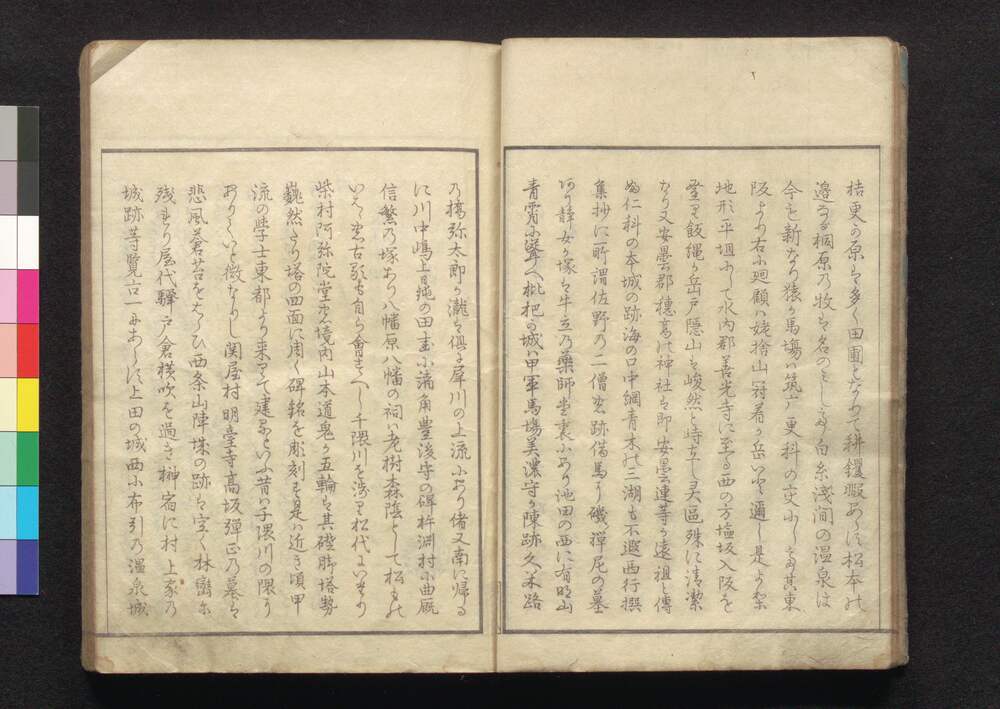 桔更の原は多く田圃となりて耕鑁暇あらす松本の
邉なる桐原乃牧も名のミし白糸浅間の温泉は
今も新なり猿か馬場は筑戸更科の交ひ其東
阪より右に廻顧は姥捨山冠着か岳いと邇し是より
地形平通して水内郡善光寺に至る西の方塩坂入阪を
登り飯縄か岳戸隠山も峻然と峙立し其区殊に清潔
なり又安曇郡穂高の神社は即安曇連等か遠祖と傳
仁科の本城の跡海の口中綱青木の三湖も不遐西行撰
集抄に所謂佐野の二僧跡借馬より磯禅尼の墓
静女か塚は牛立乃薬師堂裏にあり池田の西に有明山
青霄に聳へ枇杷の城は甲軍馬場美濃守か陳跡久米路
乃橋弥太郎か瀧も倶に犀川の上流にあり偖又南に帰る
に川中嶋上日純の田圭に諸角豊後守の碑杵渕村に典厩
信繁乃塚あり八幡原八幡の祠は老樹森陰として松の
いと古歌も自ら會すへし千隈川を渉り松代にいたり
柴村阿弥院堂境内山本道鬼か五輪は其磴脚塔勢
巍然たり塔の四面に周く碑銘を彫刻す是は近き頃甲
流の学士東都より来りて建るといふ昔は千隈川の隈り
ありといと微なりし関屋村明臺寺高坂弾正乃墓は
悲風蒼苔をはらひ西条山陣城の跡は空く林巒に
残り屋代驛戸倉横吹を過き榊宿に村上家乃
城跡等覧古一にあらす上田の城西に布引乃温泉城